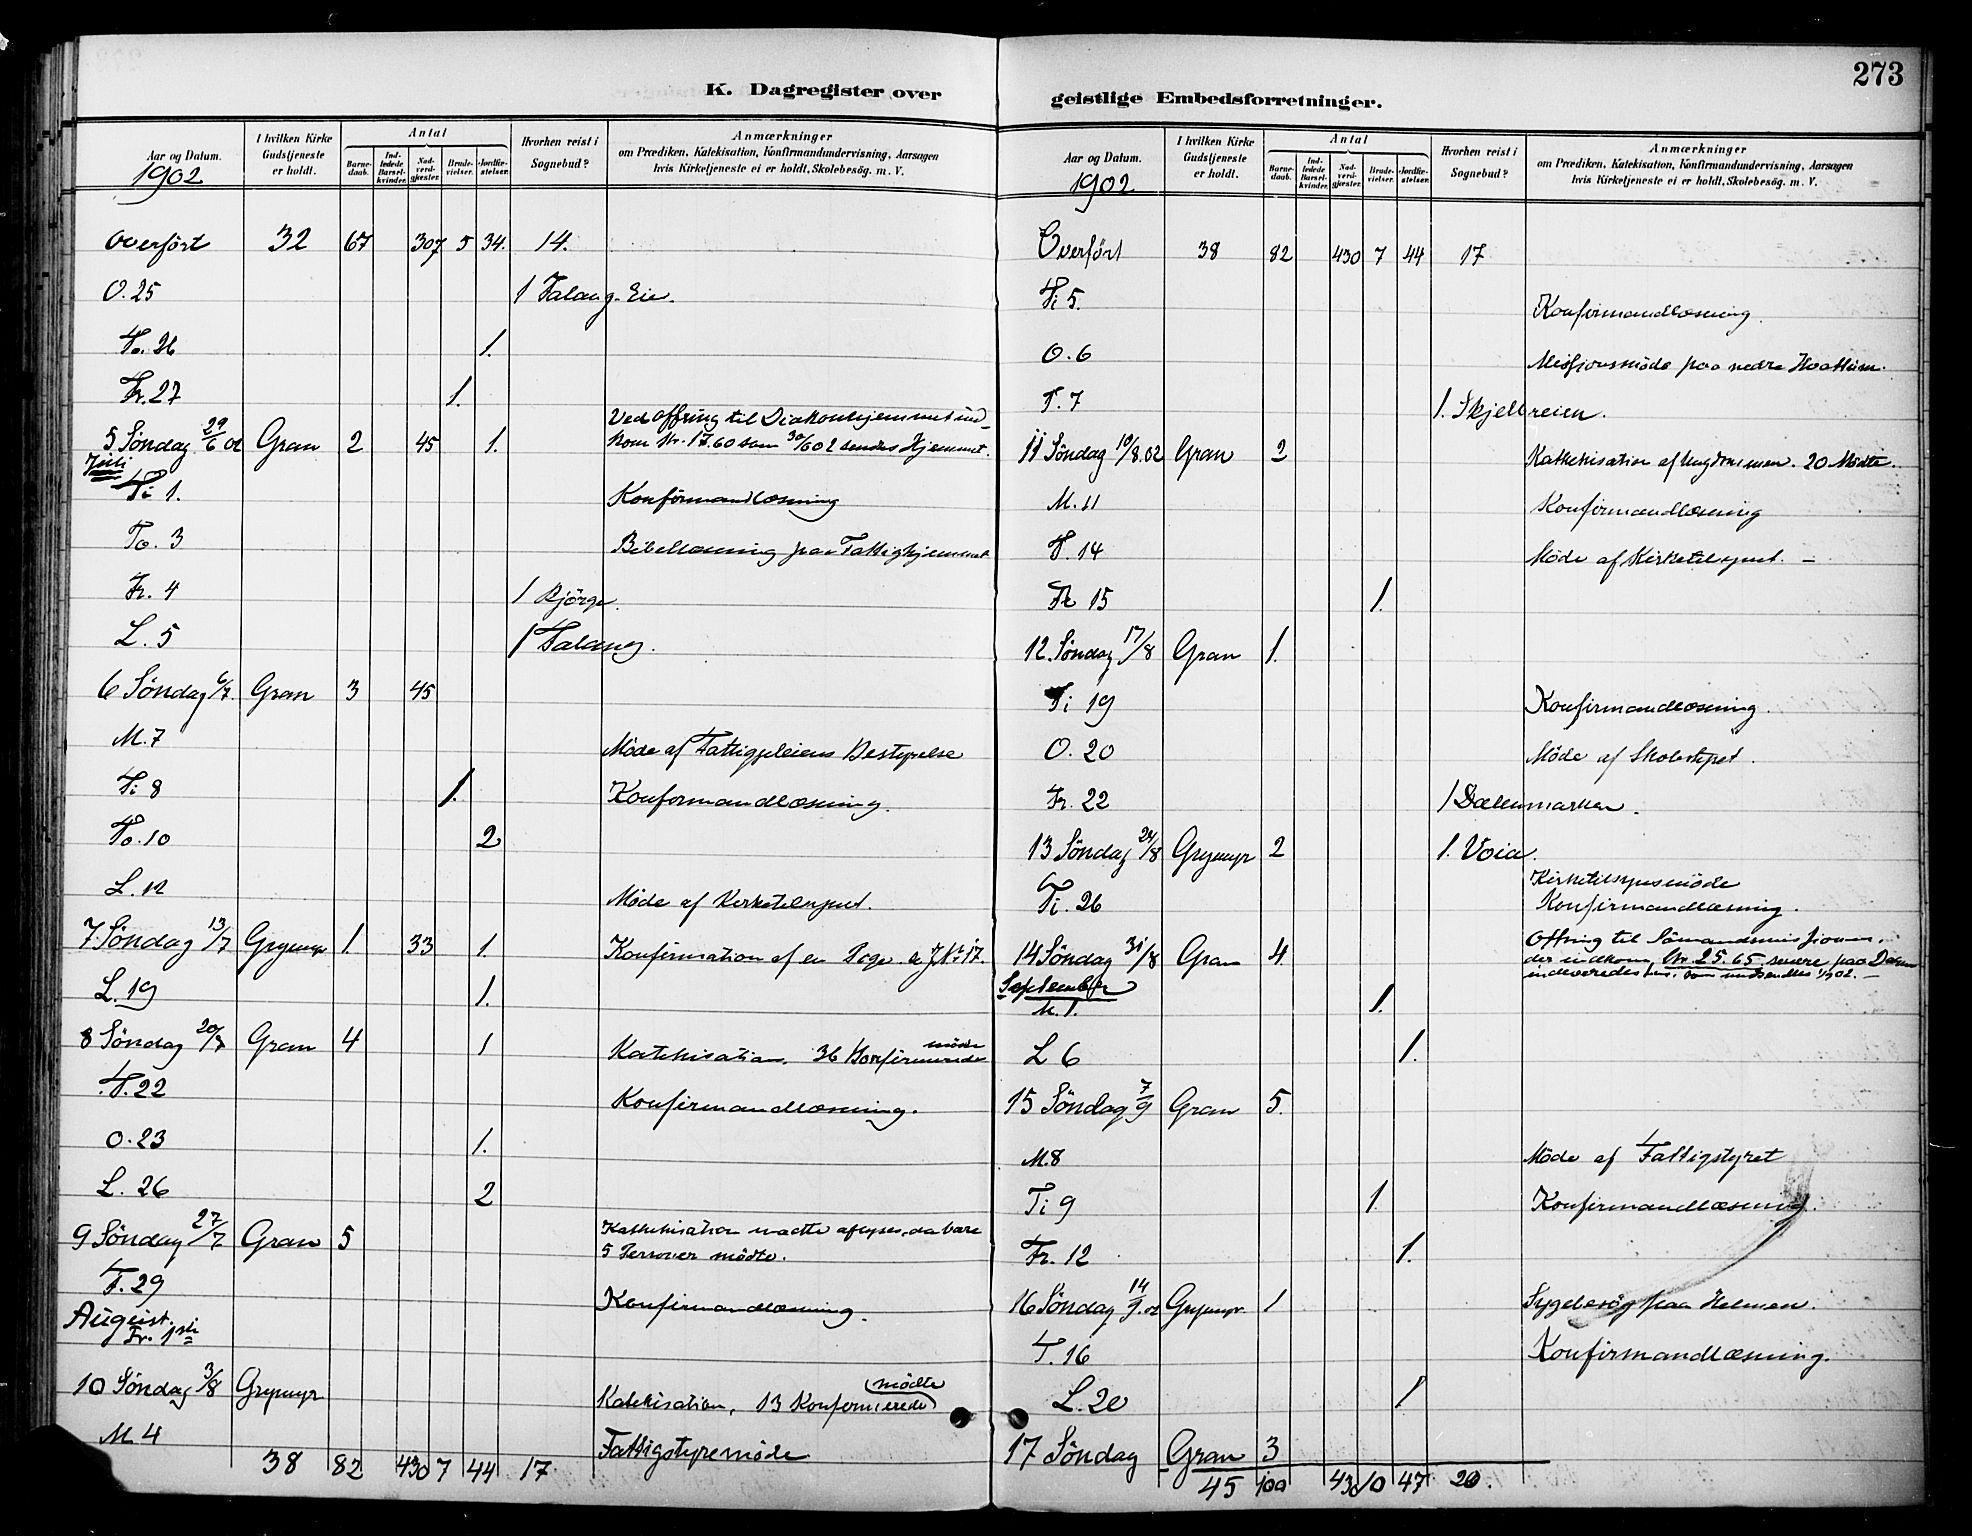 273
K. Dagregister over
Aar og Datum.
1902
I hvilken Kirke Gudstjeneste er holdt.
Antal
Barnedaab.
Indledede Barselkvinder.
Nadverdgjester.
Brudevielser.
Jordfæstelser.
Hvorhen reist i Sognebud?
Anmærkninger
om Prædiken, Katekisation, Konfirmandundervisning, Aarsagen
hvis Kirketjeneste ei er holdt, Skolebesøg. m. V.
Overført 32 67 307 5 34. 14.
O. 25 1 Falang-Eie.
To. 26 1.
Fr. 27 1.
Ved Offring til Diakonhjemmet ind-
5 Søndag 29/6 02 Gran 2 45 1. kom Kr. 17.60 som 30/6 02 sendes Hjemmet.
Juli
Ti 1. Konfirmandlæsning
To. 3 Bibellæsning paa Fattighjemmet
Fr. 4 1 Bjørge.
L. 5 1 Falang.
6 Søndag 6/7. Gran 3 45
M. 7 Møde af Fattiggjeleiens Bestyrelse
Ti 8 1. Konformandlæsning.
To. 10 2
L. 12 Møde af Kirketilsynet.
7. Søndag 13/7 Grymyr 1. 33 1. Konfirmation af en Pige
L. 19 1.
8 Søndag 20/7 Gran 4 1 Katekisation. 36 Konfirmerede møtte
T. 22 Konfirmandlæsning.
O. 23 1.
L. 26 2
9 Søndag 27/7 Gran 5 Kathekisation maatte aflyses, da bare
5 Personer mødte.
T. 29 Konfirmandlæsning.
August.
Fr. 1ste
10 Søndag 3/8 Grymyr Katekisation, 13 Konfirmerede mødte
M 4 Fattigstyremøde
38 82 430 7 44 17.
geistlige Embedsforretninger.
Aar og Datum.
1902
I hvilken Kirke Gudstjeneste er holdt.
Antal
Barnedaab.
Indledede Barselkvinder.
Nadverdgjester.
Brudevielser.
Jordfæstelser.
Hvorhen reist i Sognebud?
Anmærkninger
om Prædiken, Katekisation, Konfirmandundervisning, Aarsagen
hvis Kirketjeneste ei er holdt, Skolebesøg. m. V.
Overført 38 82 430 7 44 17
Ti 5. Konfirmandlæsning.
O. 6 Missionsmøde paa nedre Hvattum.
T. 7 1. Skjelbreien.
11 Søndag 10/8.02 Gran 2 Kathekisation af Ungdommen. 20 Mødte.
M. 11 Konfirmandlæsning
T. 14 Møde af Kirketilsynet. –
Fr 15 1.
12. Søndag 17/8 Gran 1.
Ti 19 Konfirmandlæsning.
O. 20 Møde af Skolestyret.
Fr. 22 1 Dælenmarken.
13 Søndag 24/8 Grymyr 2 1. Voia.
Kirketilsynsmøde
Ti. 26 Konfirmandlæsning.
14 Søndag 31/8 Gran 4. Offring til Sømandsmissionen,
der indkom Kr. 25.65, senere paa Dagen
September
M. 1. 1.
L 6 1.
15 Søndag 7/9 Gran 5.
M. 8 Møde af Fattigstyret
Ti 9 1. Konfirmandlæsning.
Fr. 12 1.
16 Søndag 14/9.02 Grymyr 1 Sygebesøg paa Helmen.
T. 16 Konfirmandlæsning.
L. 20 1
17 Søndag Gran 3
45 100 430 10 47 20.